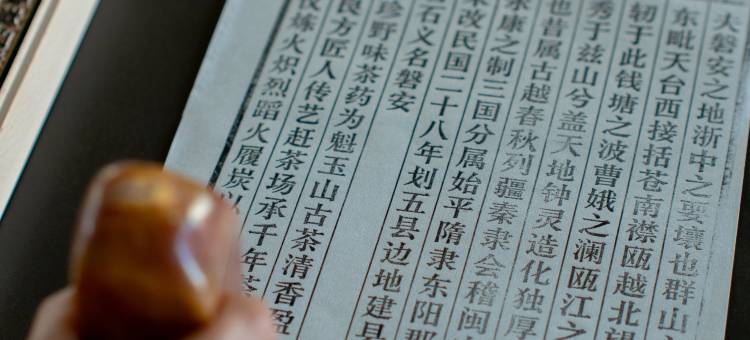 夫磐安之地浙中之要壤也群山
东毗天台西接括苍南襟瓯越北望
轫于此钱塘之波曹娥之澜瓯江之
秀于兹山兮盖天地钟灵造化独厚
也昔属古越春秋列疆秦隶会稽闽
永康之制三国分属始平隋隶东阳郡
改民国二十八年划五县边地建县
石义名磐安
珍野味茶药为魁玉山古茶清香盈
良方匠人传艺赶茶场承千年茶
炼火炽烈蹈火履炭以